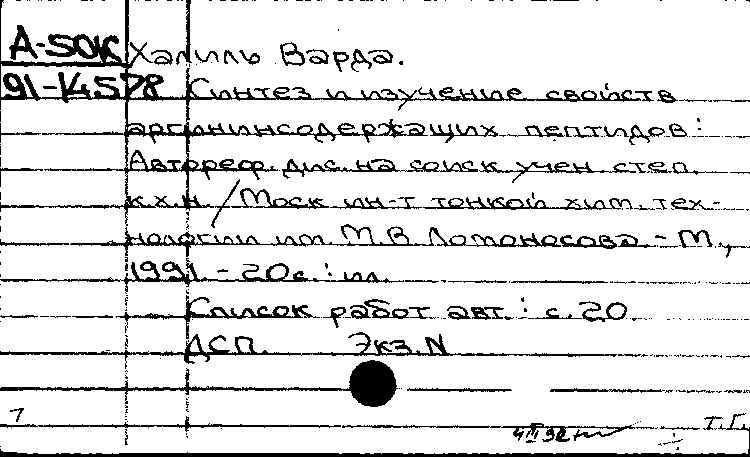 А-50К Халиль Варда.
91-14578 Синтез и изучение свойств
аргининсодержащих пептидов :
Автореф. дис. на соиск учен. степ.
к.х.н. / Моск ин-т тонкой хим. тех-
нологии им. М.В. Ломоносова. - М.,
1991. - 20с. : ил.
Список работ авт. : с. 20.
ДСП. Экз. N
7 Т.Г.